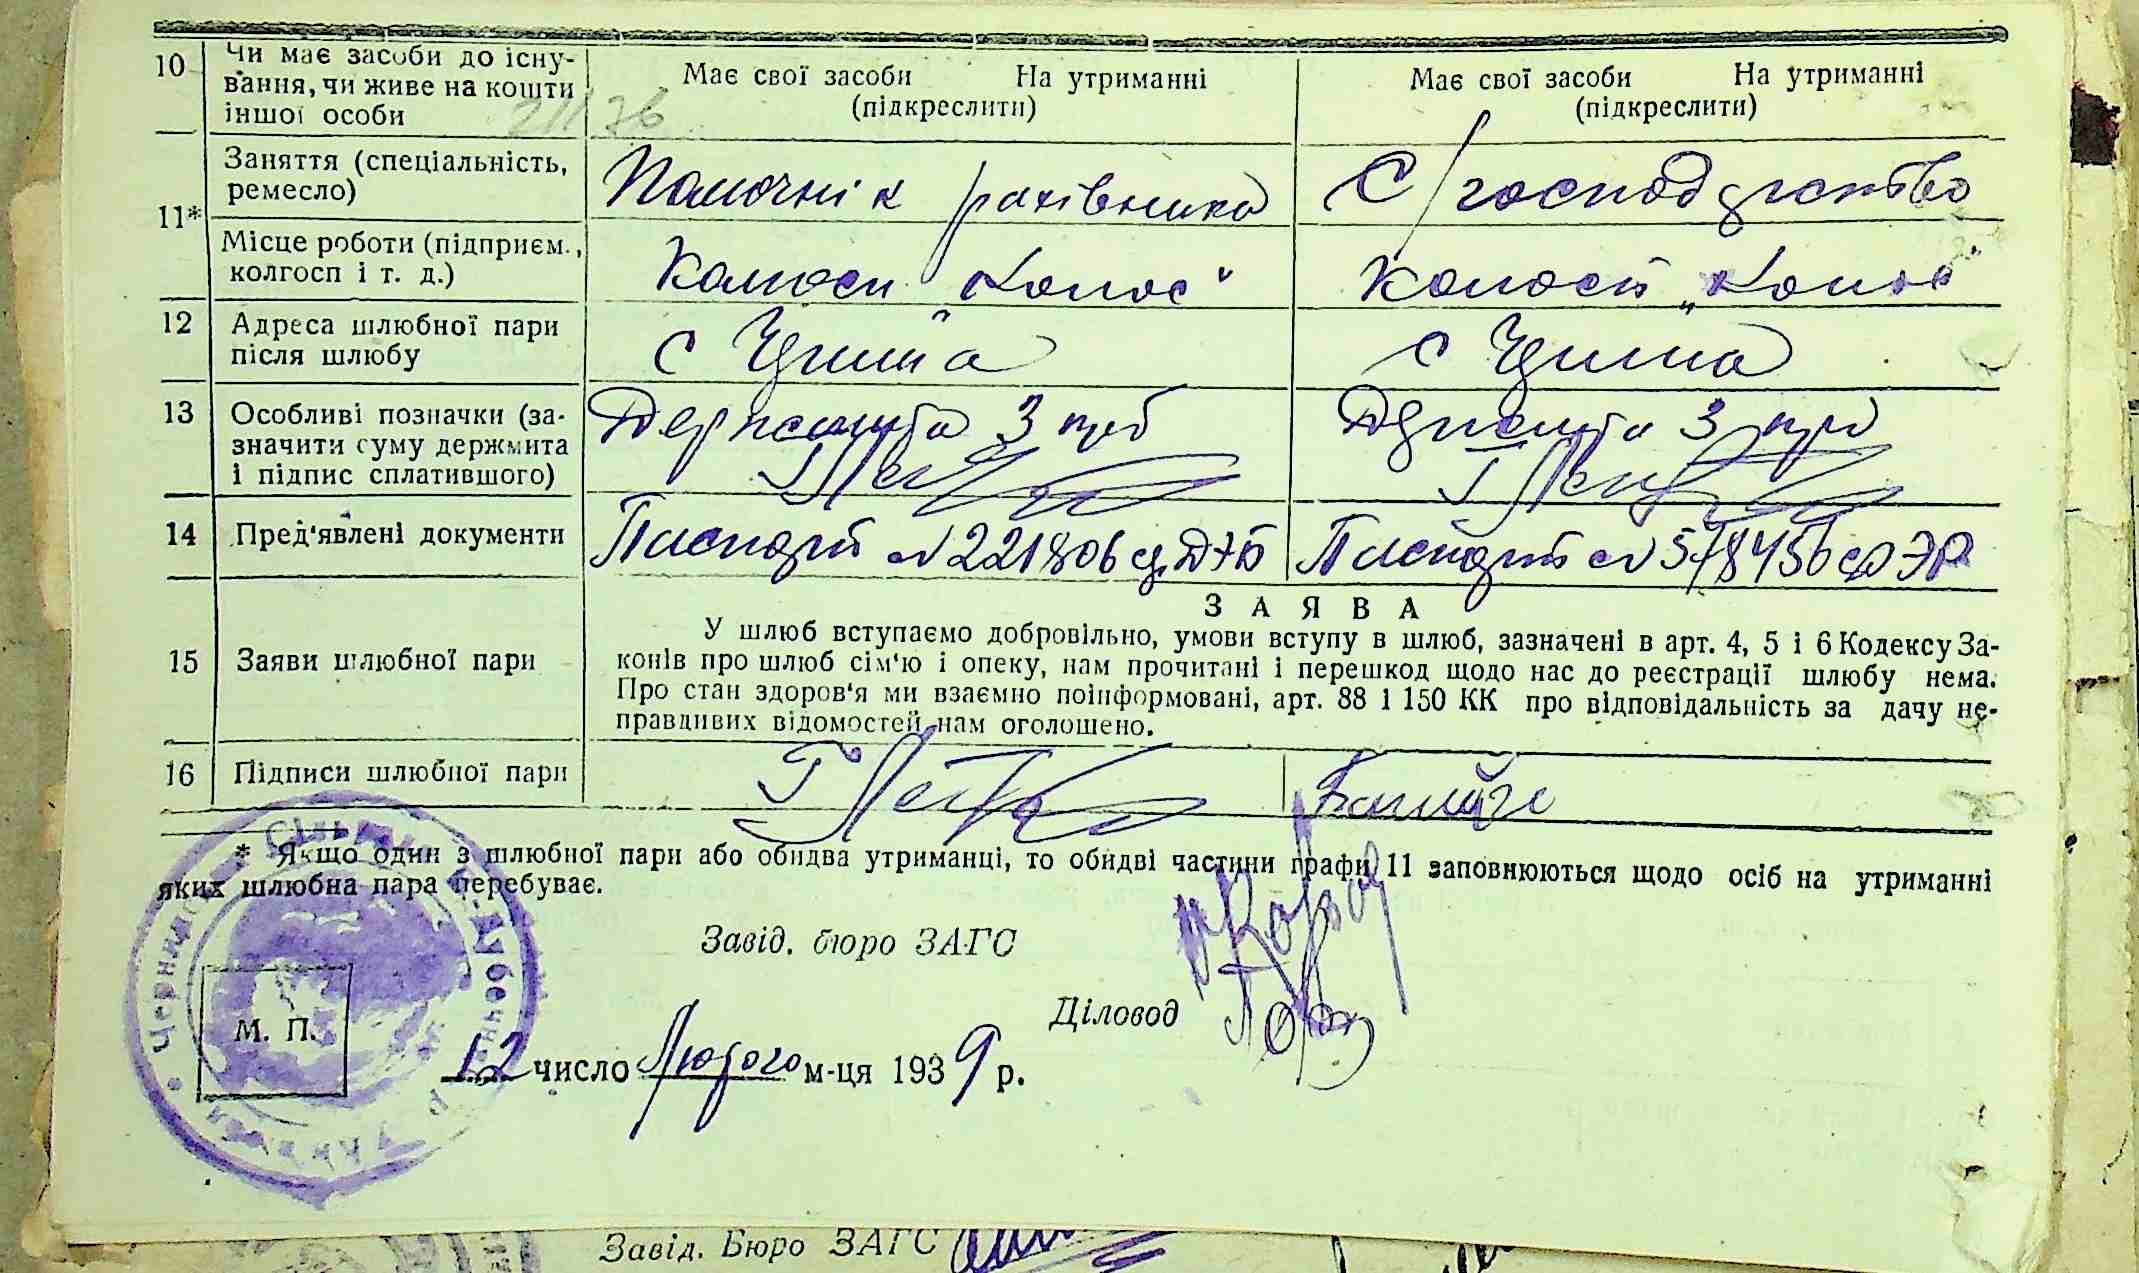 10 Чи має засоби до існу-
вання, чи живе на кошти
іншої особи
Має свої засоби На утриманні
(підкреслити)
Має свої засоби На утриманні
(підкреслити)
11* Заняття (спеціальність,
ремесло)
Помочнік рахівника
С/господарство
Місце роботи (підприєм.,
колгосп і т. д.)
Колгосп „Колос"
Колгосп „Колос"
12 Адреса шлюбної пари
після шлюбу
с
с
13 Особливі позначки (за-
значити суму держмита
і підпис сплатившого)
Держмита 3 крб
Держмита 3 крб
14 Пред'явлені документи
Паспорт №221806
Паспорт № 578456
ЗАЯВА
15 Заяви шлюбної пари
У шлюб вступаємо добровільно, умови вступу в шлюб, зазначені в арт. 4, 5 і 6 Кодексу За-
конів про шлюб сім'ю і опеку, нам прочитані і перешкод щодо нас до реєстрації шлюбу нема.
Про стан здоров'я ми взаємно поінформовані, арт. 88 і 150 КК про відповідальність за дачу не-
правдивих відомостей нам оголошено.
16 Підписи шлюбної пари
* Якщо один з шлюбної пари або обидва утриманці, то обидві частини графи 11 заповнюються щодо осіб на утриманні
яких шлюбна пара перебуває.
Завід. бюро ЗАГС
Діловод
М. П.
12 число Лютого м-ця 1939 р.
Завід. Бюро ЗАГС